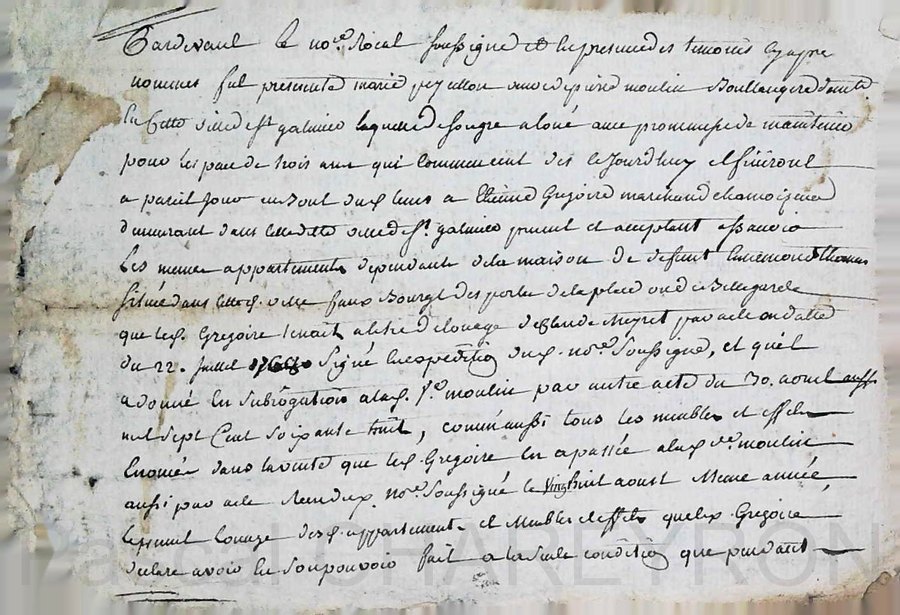 Pardevant le no.re Royal soussigné et en presence des temoins cy apre
nommes fut presente marie peyzellon veuve de pierre moulin Boullangere d'ent.
la Cette ville de st. galmier laquelle de son gre a loué avec promesse de maintenir
pour les pace de trois ans qui commencent des ce jourdhuy et finiront
a pareil jour en tout du d. tems a Etienne Gregoire marchand chamoiseur
demeurant dans cette ditte ville de st. galmier present et acceptant assavoir
les memes appartements dependants de la maison de deffunt Thomas
située dans cette d. ville faux Bourgt des portes de la place ord. de Bellegarde
que led. Gregoire tenait a titre de louage de Claude Meyret par acte en datte
du 22. Juillet signé en expedition dud. no.re soussigné, et quel
a donné en subrogation a lad. ve. moulin par autre acte du 30. aoust aussi
mil sept Cent soixante huit, comme aussi tous les meubles et effets
Enoncés dans la vente que led. Gregoire en a passée a lad. ve. moulin
aussi par acte receu dud. no.re soussigné le vingt huit aoust meme année,
le present louage desd. appartements et meubles et effets que led. Gregoire
declare avoir en son pouvoir fait a la seule condition que pendant
Pascal CHAREYRON